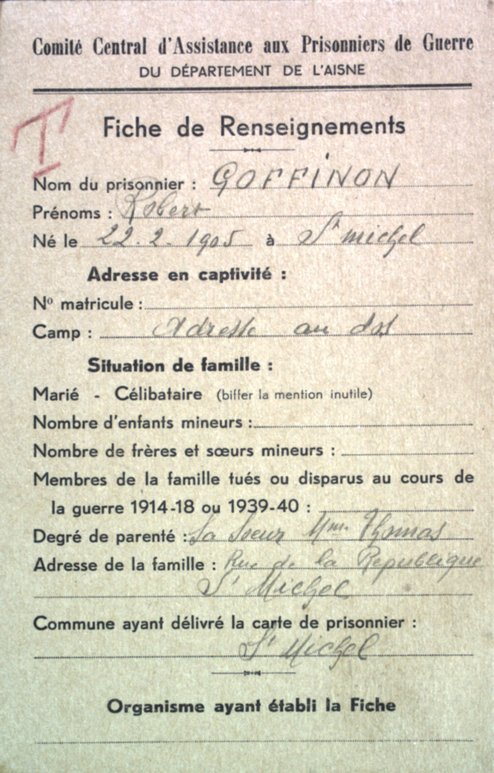 Comité Central d'Assistance aux Prisonniers de Guerre
DU DÉPARTEMENT DE L'AISNE
T
Fiche de Renseignements
Nom du prisonnier : GOFFINON
Prénoms : Robert
Né le 22-2-1905 à St Michel
Adresse en captivité :
No matricule :
Camp : Adresse au dos
Situation de famille :
Marié - Célibataire (biffer la mention inutile)
Nombre d'enfants mineurs :
Nombre de frères et sœurs mineurs :
Membres de la famille tués ou disparus au cours de
la guerre 1914-18 ou 1939-40 :
Degré de parenté : Sa Soeur Mme Thomas
Adresse de la famille : Rue de la Republique
St Michel
Commune ayant délivré la carte de prisonnier :
St Michel
Organisme ayant établi la Fiche